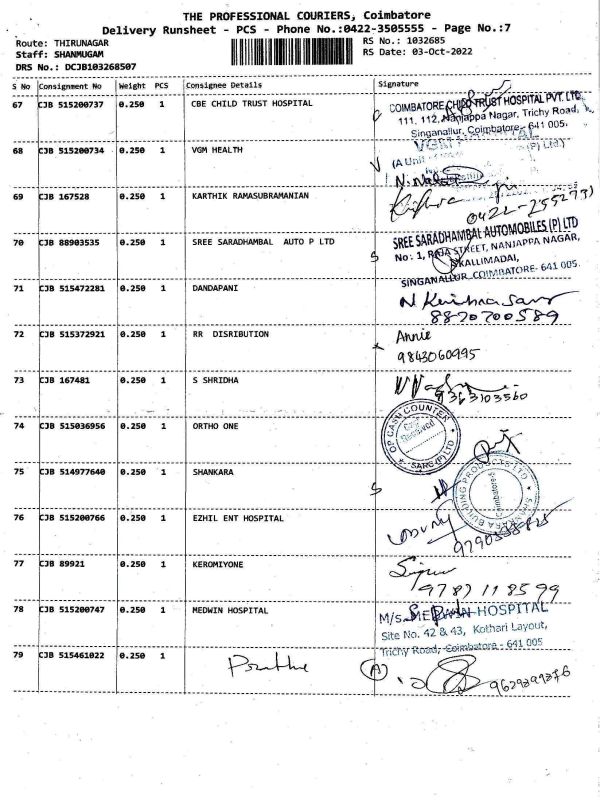 THE PROFESSIONAL COURIERS, Coimbatore
Delivery Runsheet - PCS - Phone No.:0422-3505555 - Page No.:7
Route: THIRUNAGAR RS No.: 1032685
Staff: SHANMUGAM RS Date: 03-Oct-2022
DRS No.: DCJB103268507
S No Consignment No Weight PCS Consignee Details Signature
67 CJB 515200737 0.250 1 CBE CHILD TRUST HOSPITAL
COIMBATORE CHILD TRUST HOSPITAL PVT. LTD.
111, 112, Nanjappa Nagar, Trichy Road,
Singanallur, Coimbatore- 641 005.
68 CJB 515200734 0.250 1 VGM HEALTH
(A Unit (P) Ltd.)
69 CJB 167528 0.250 1 KARTHIK RAMASUBRAMANIAN
70 CJB 88903535 0.250 1 SREE SARADHAMBAL AUTO P LTD
SREE SARADHAMBAL AUTOMOBILES (P) LTD
No: 1, RAJA STREET, NANJAPPA NAGAR,
KALLIMADAI,
SINGANALLUR, COIMBATORE- 641 005.
71 CJB 515472281 0.250 1 DANDAPANI
8870700589
72 CJB 515372921 0.250 1 RR DISRIBUTION
Annie
9843060995
73 CJB 167481 0.250 1 S SHRIDHA
9363103560
74 CJB 515036956 0.250 1 ORTHO ONE
OP CASH COUNTER
Received
SARC (P) LTD
75 CJB 514977640 0.250 1 SHANKARA
BUILDING PRODUCTS LTD
Coimbatore
76 CJB 515200766 0.250 1 EZHIL ENT HOSPITAL
77 CJB 89921 0.250 1 KEROMIYONE
9787118599
78 CJB 515200747 0.250 1 MEDWIN HOSPITAL
M/s. MEDWIN HOSPITAL
Site No. 42 & 43, Kothari Layout,
Trichy Road, Coimbatore - 641 005
79 CJB 515461022 0.250 1
9629299276